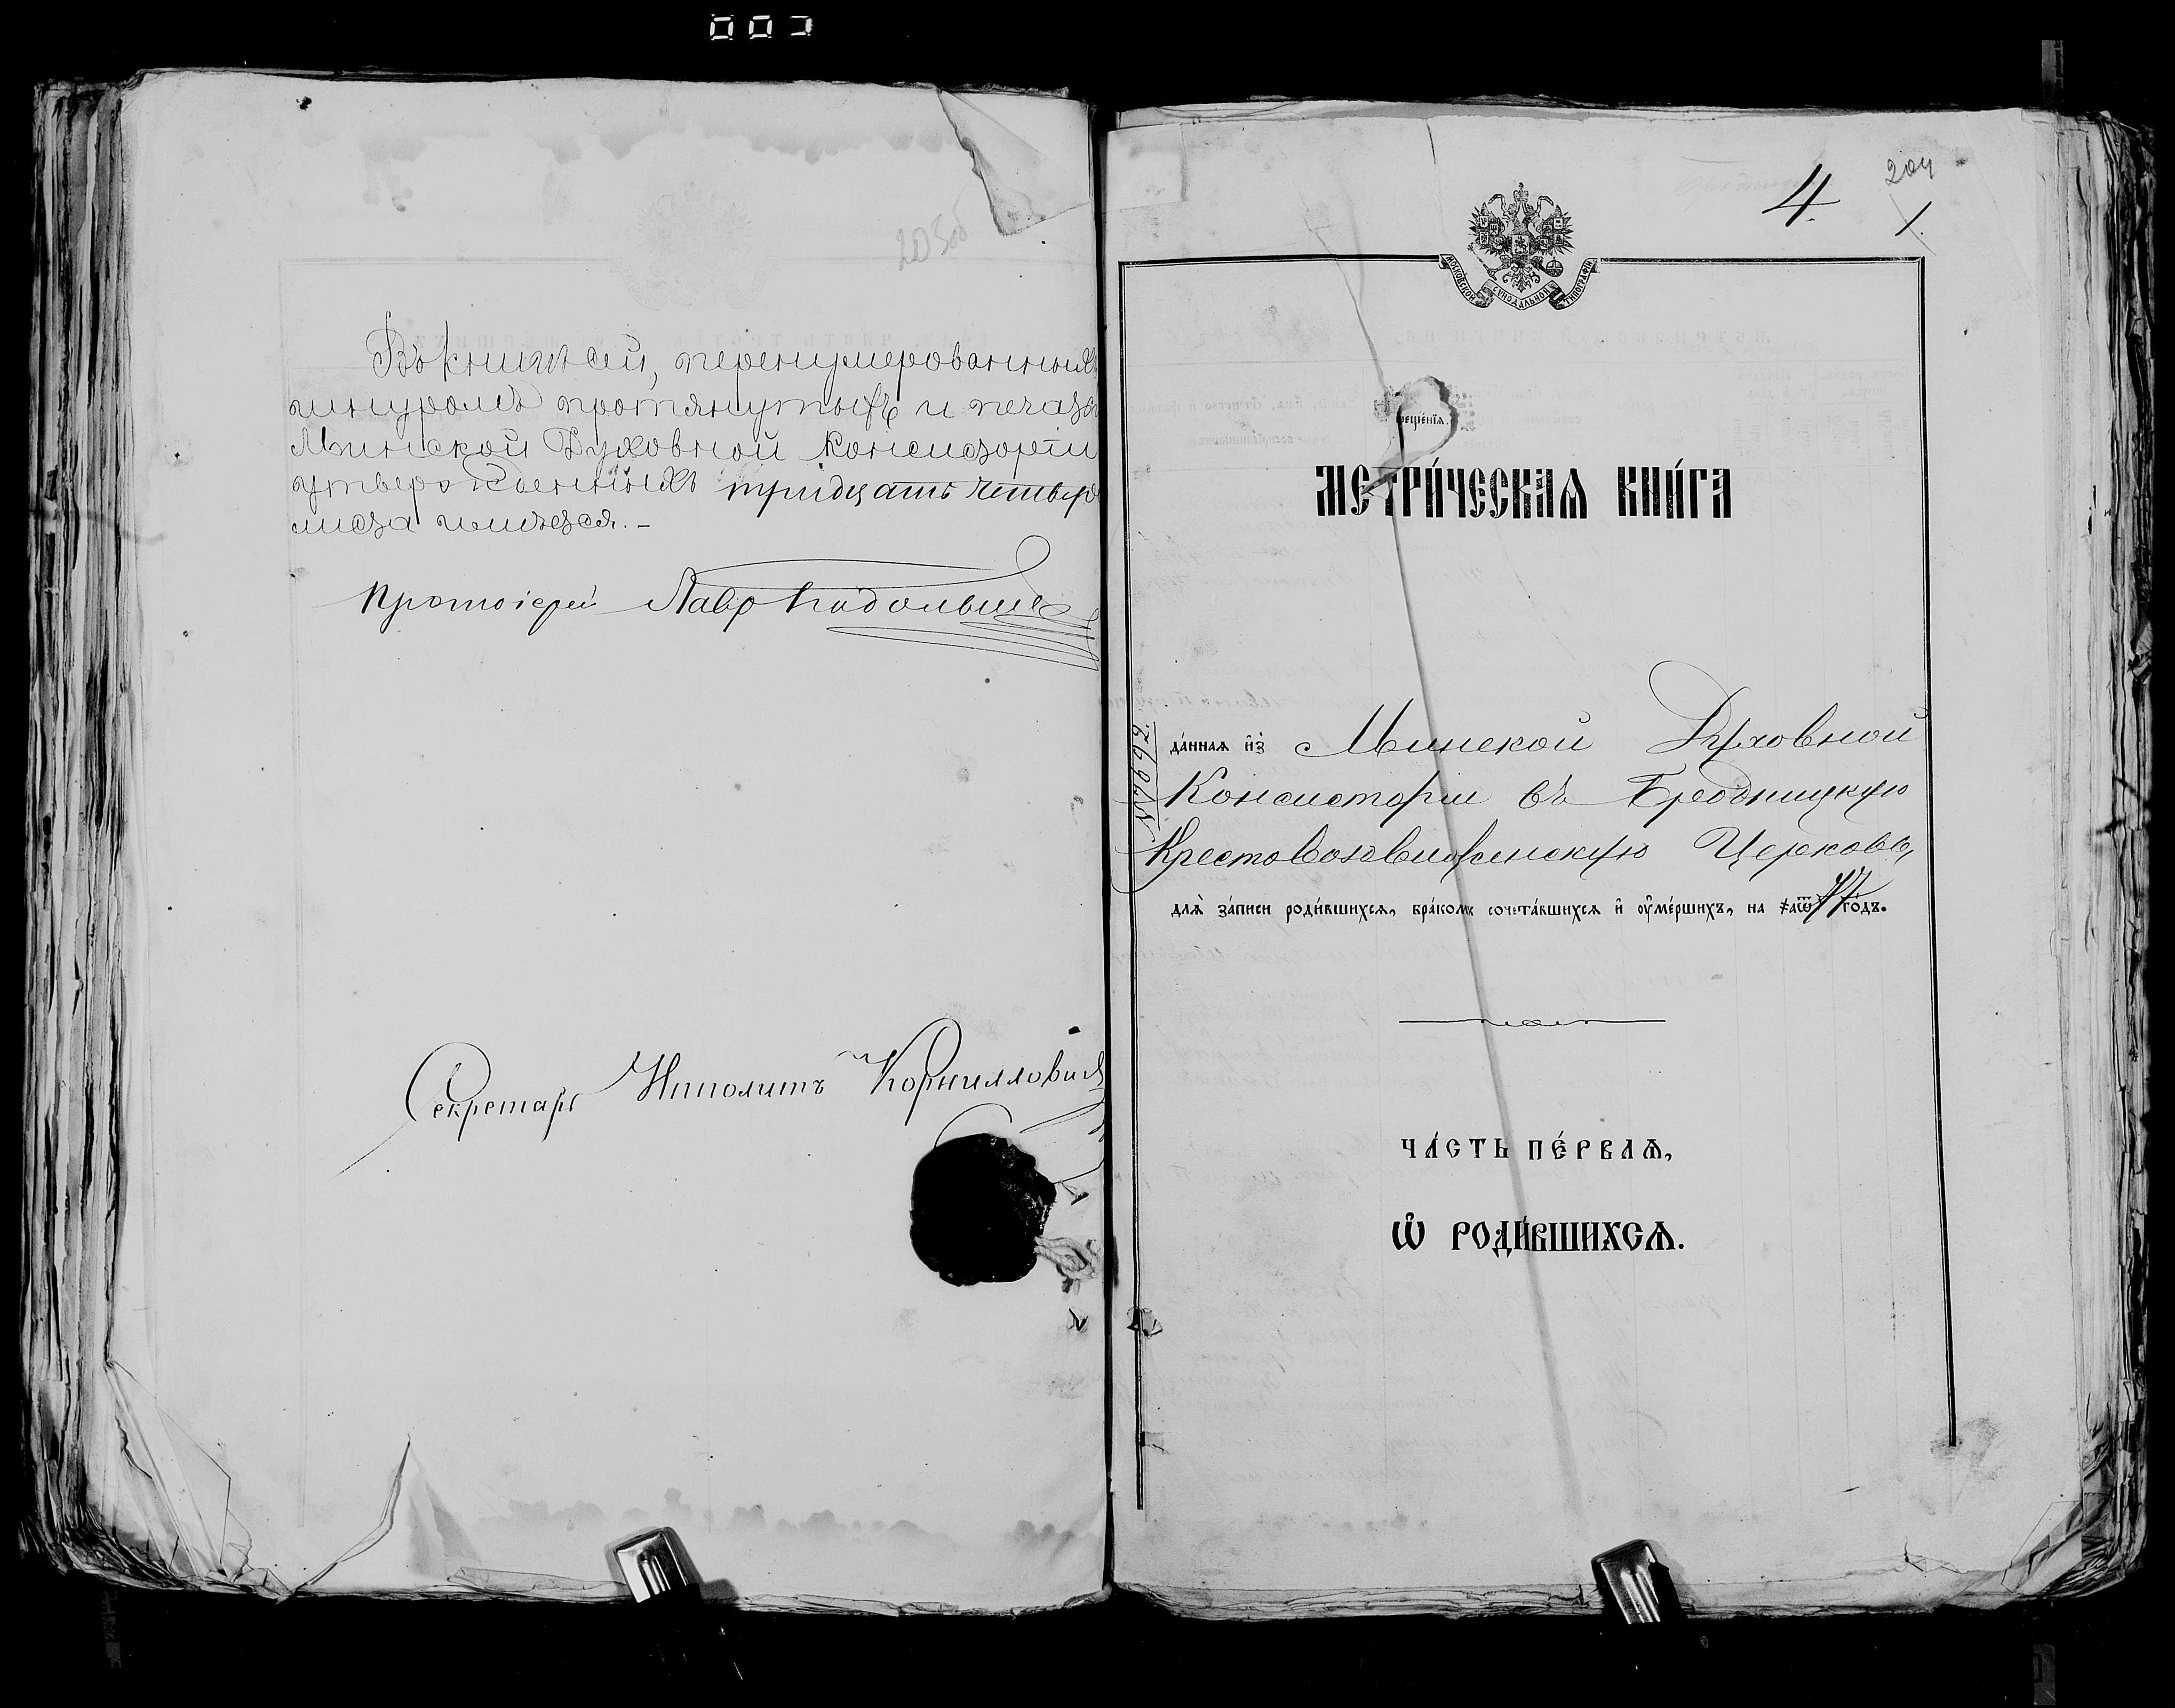 205об
Въ книгѣ сей, перенумерованныхъ
шнуромъ протянутыхъ и печа
Минской Духовной Консисторіи
утвержденныхъ тридцать четыре
листа имѣется.-
Протоіерей Лавр
Секретарь Ипполитъ Корнилловичъ
204
4.
1.
МОСКОВСКОЙ СѴНОДАЛЬНОЙ ТИПОГРАФІИ
МЕТРИ́ЧЕСКАѦ КНИ́ГА
№7692.
да́ннаѧ и҆зъ Минской Духовной
Консисторіи въ Бродницкую
Крестовоздвиженскую Церковь,
длѧ̀ за́писи роди́вшихсѧ, бра́комъ сочета́вшихсѧ и҆ ᲂу҆ме́ршихъ, на ҂аѿ 77 го́дъ.
ЧА́СТЬ ПЕ́РВАѦ,
Ѡ҆ РОДИ́ВШИХСѦ.